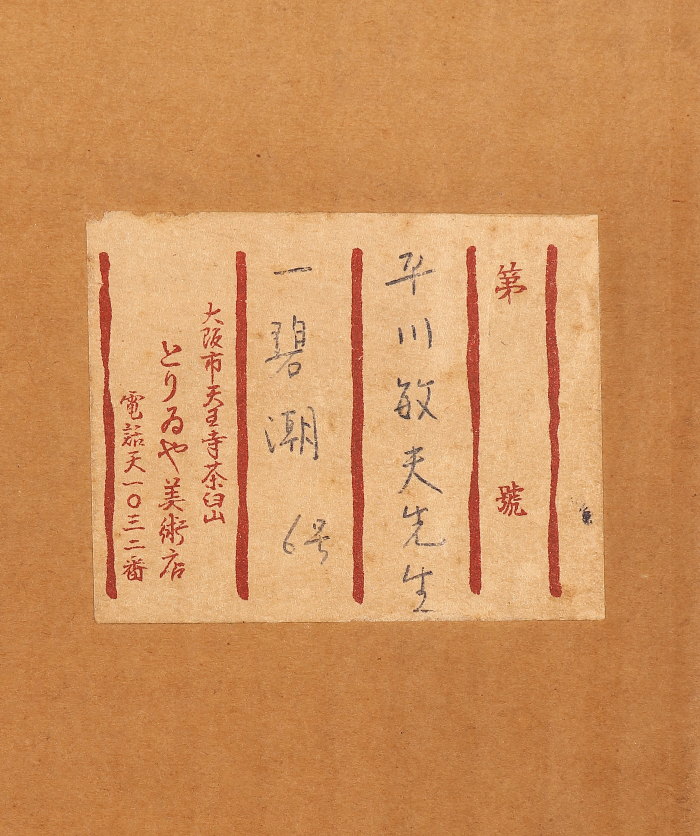 第 號
平川敏夫先生
一碧潮 6号
大阪市天王寺茶臼山
とりゐや美術店
電話天一〇三二番